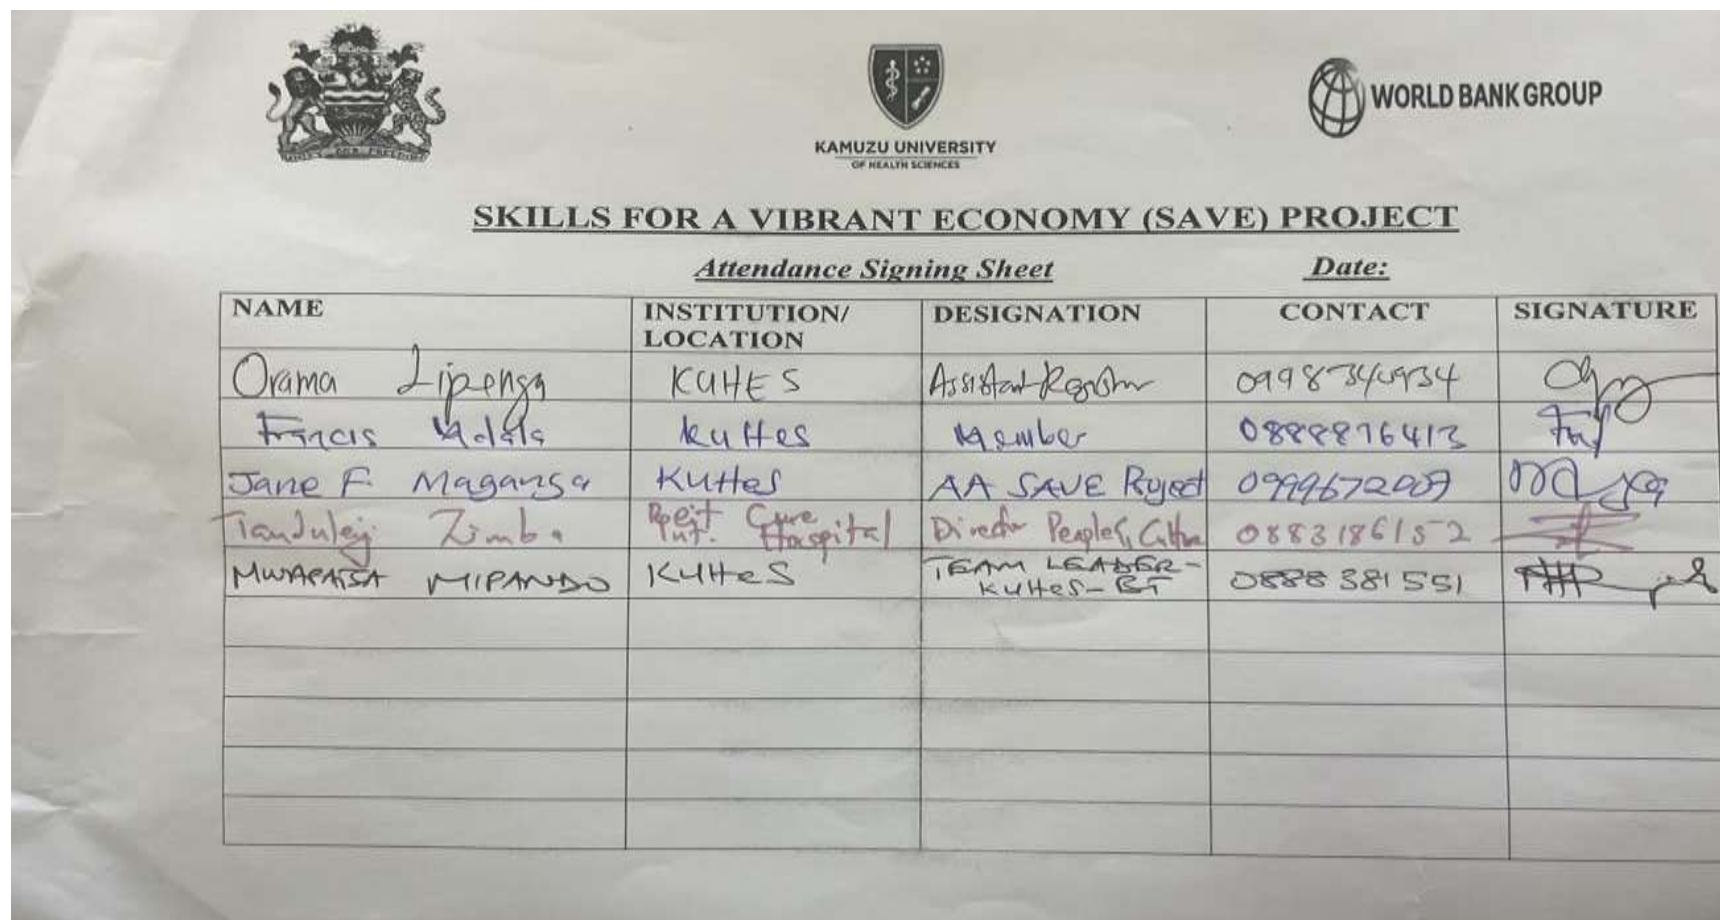 UNITY AND FREEDOM
KAMUZU UNIVERSITY
OF HEALTH SCIENCES
WORLD BANK GROUP
SKILLS FOR A VIBRANT ECONOMY (SAVE) PROJECT
Attendance Signing Sheet Date:
NAME INSTITUTION/ LOCATION DESIGNATION CONTACT SIGNATURE
Orama Lipenga KUHES Assistant Registrar
Francis KuHes Member 0888876413
Jane F. Maganga KuHes AA SAVE Project 0999672009
Zimba Beit Cure Int. Hospital Director People & Culture 0883186152
MWAPATSA MIPANDO KUHeS TEAM LEADER - KUHeS - BT 0888 381 551